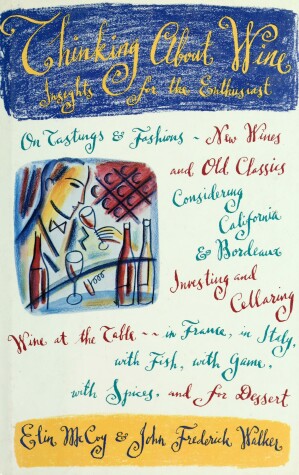 Thinking About Wine
Insights for the Enthusiast
On Tastings & Fashions - New Wines
and Old Classics
Considering
California
& Bordeaux
Investing and
Cellaring
Wine at the Table -- in France, in Italy,
with Fish, with Game,
with Spices, and for Dessert
Elin McCoy & John Frederick Walker